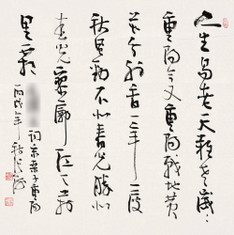 人生易老天難老歲歲
重陽今又重陽戰地黃
花分外香一年一度
秋風勁不似春光勝似
春光寥廓江天萬
里霜
詞采桑子重陽
丙戌年秋